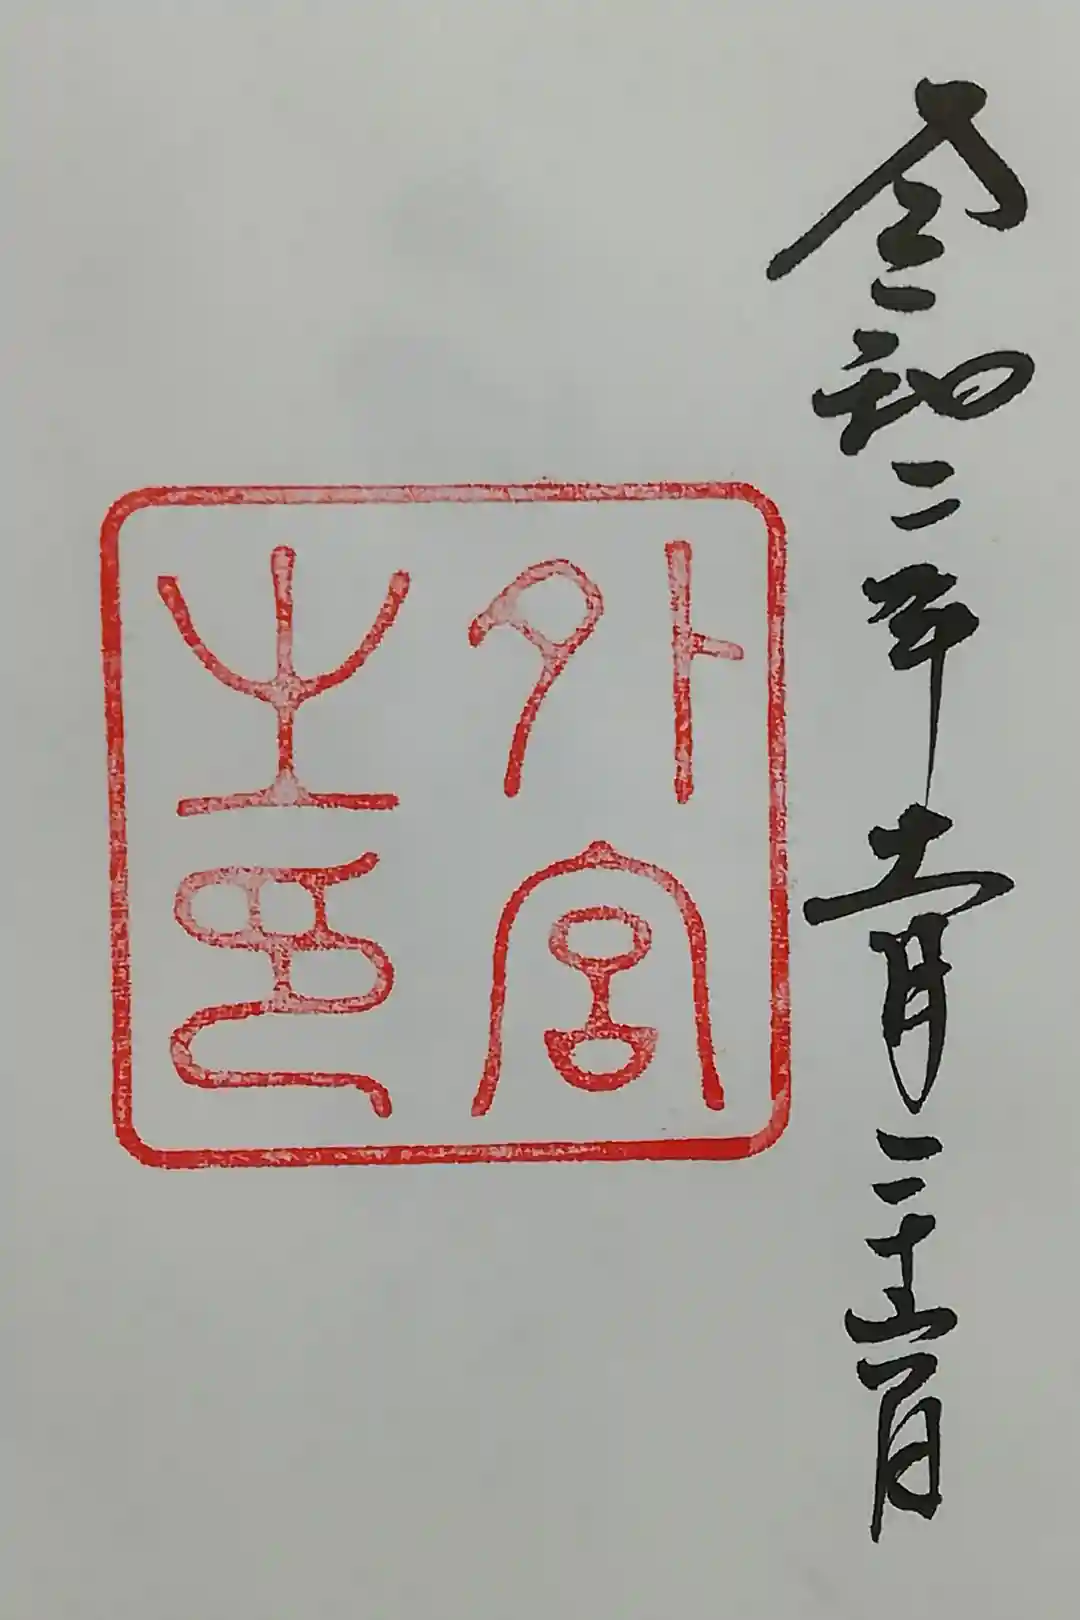 令和二年十一月二十五日
外宮
之印